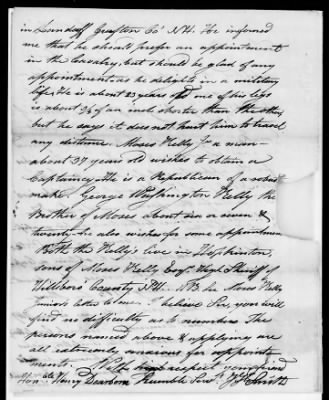 in Landaff Grafton Co. N.H. He informed
me that he should prefer an appointment
in the Cavalry, but should be glad of any
appointment as he delights in a military
life, He is about 23 years old one of his legs
is about 3/4 of an inch shorter than the other,
but he says it does not hurt him to travel
any distance. Moses Kelly Jr a man
about 39 years old wishes to obtain a
Captaincy, He is a Republican of a robust
make. George Washington Kelly the
Brother of Moses about six or seven &
twenty. he also wishes for some appointment
Both the Kelly's live in Hopkinton,
sons of Moses Kelly Esqr. High Sheriff of
Hillsboro' County N.H. N.B. See Moses Kelly
Junior's letter to me. I believe Sir, you will
find no difficulty as to numbers. The
persons named above & applying are
all extremely anxious for appoint
ments. With high respect your friend
Honble Henry Dearborn & humble Servt. Smith